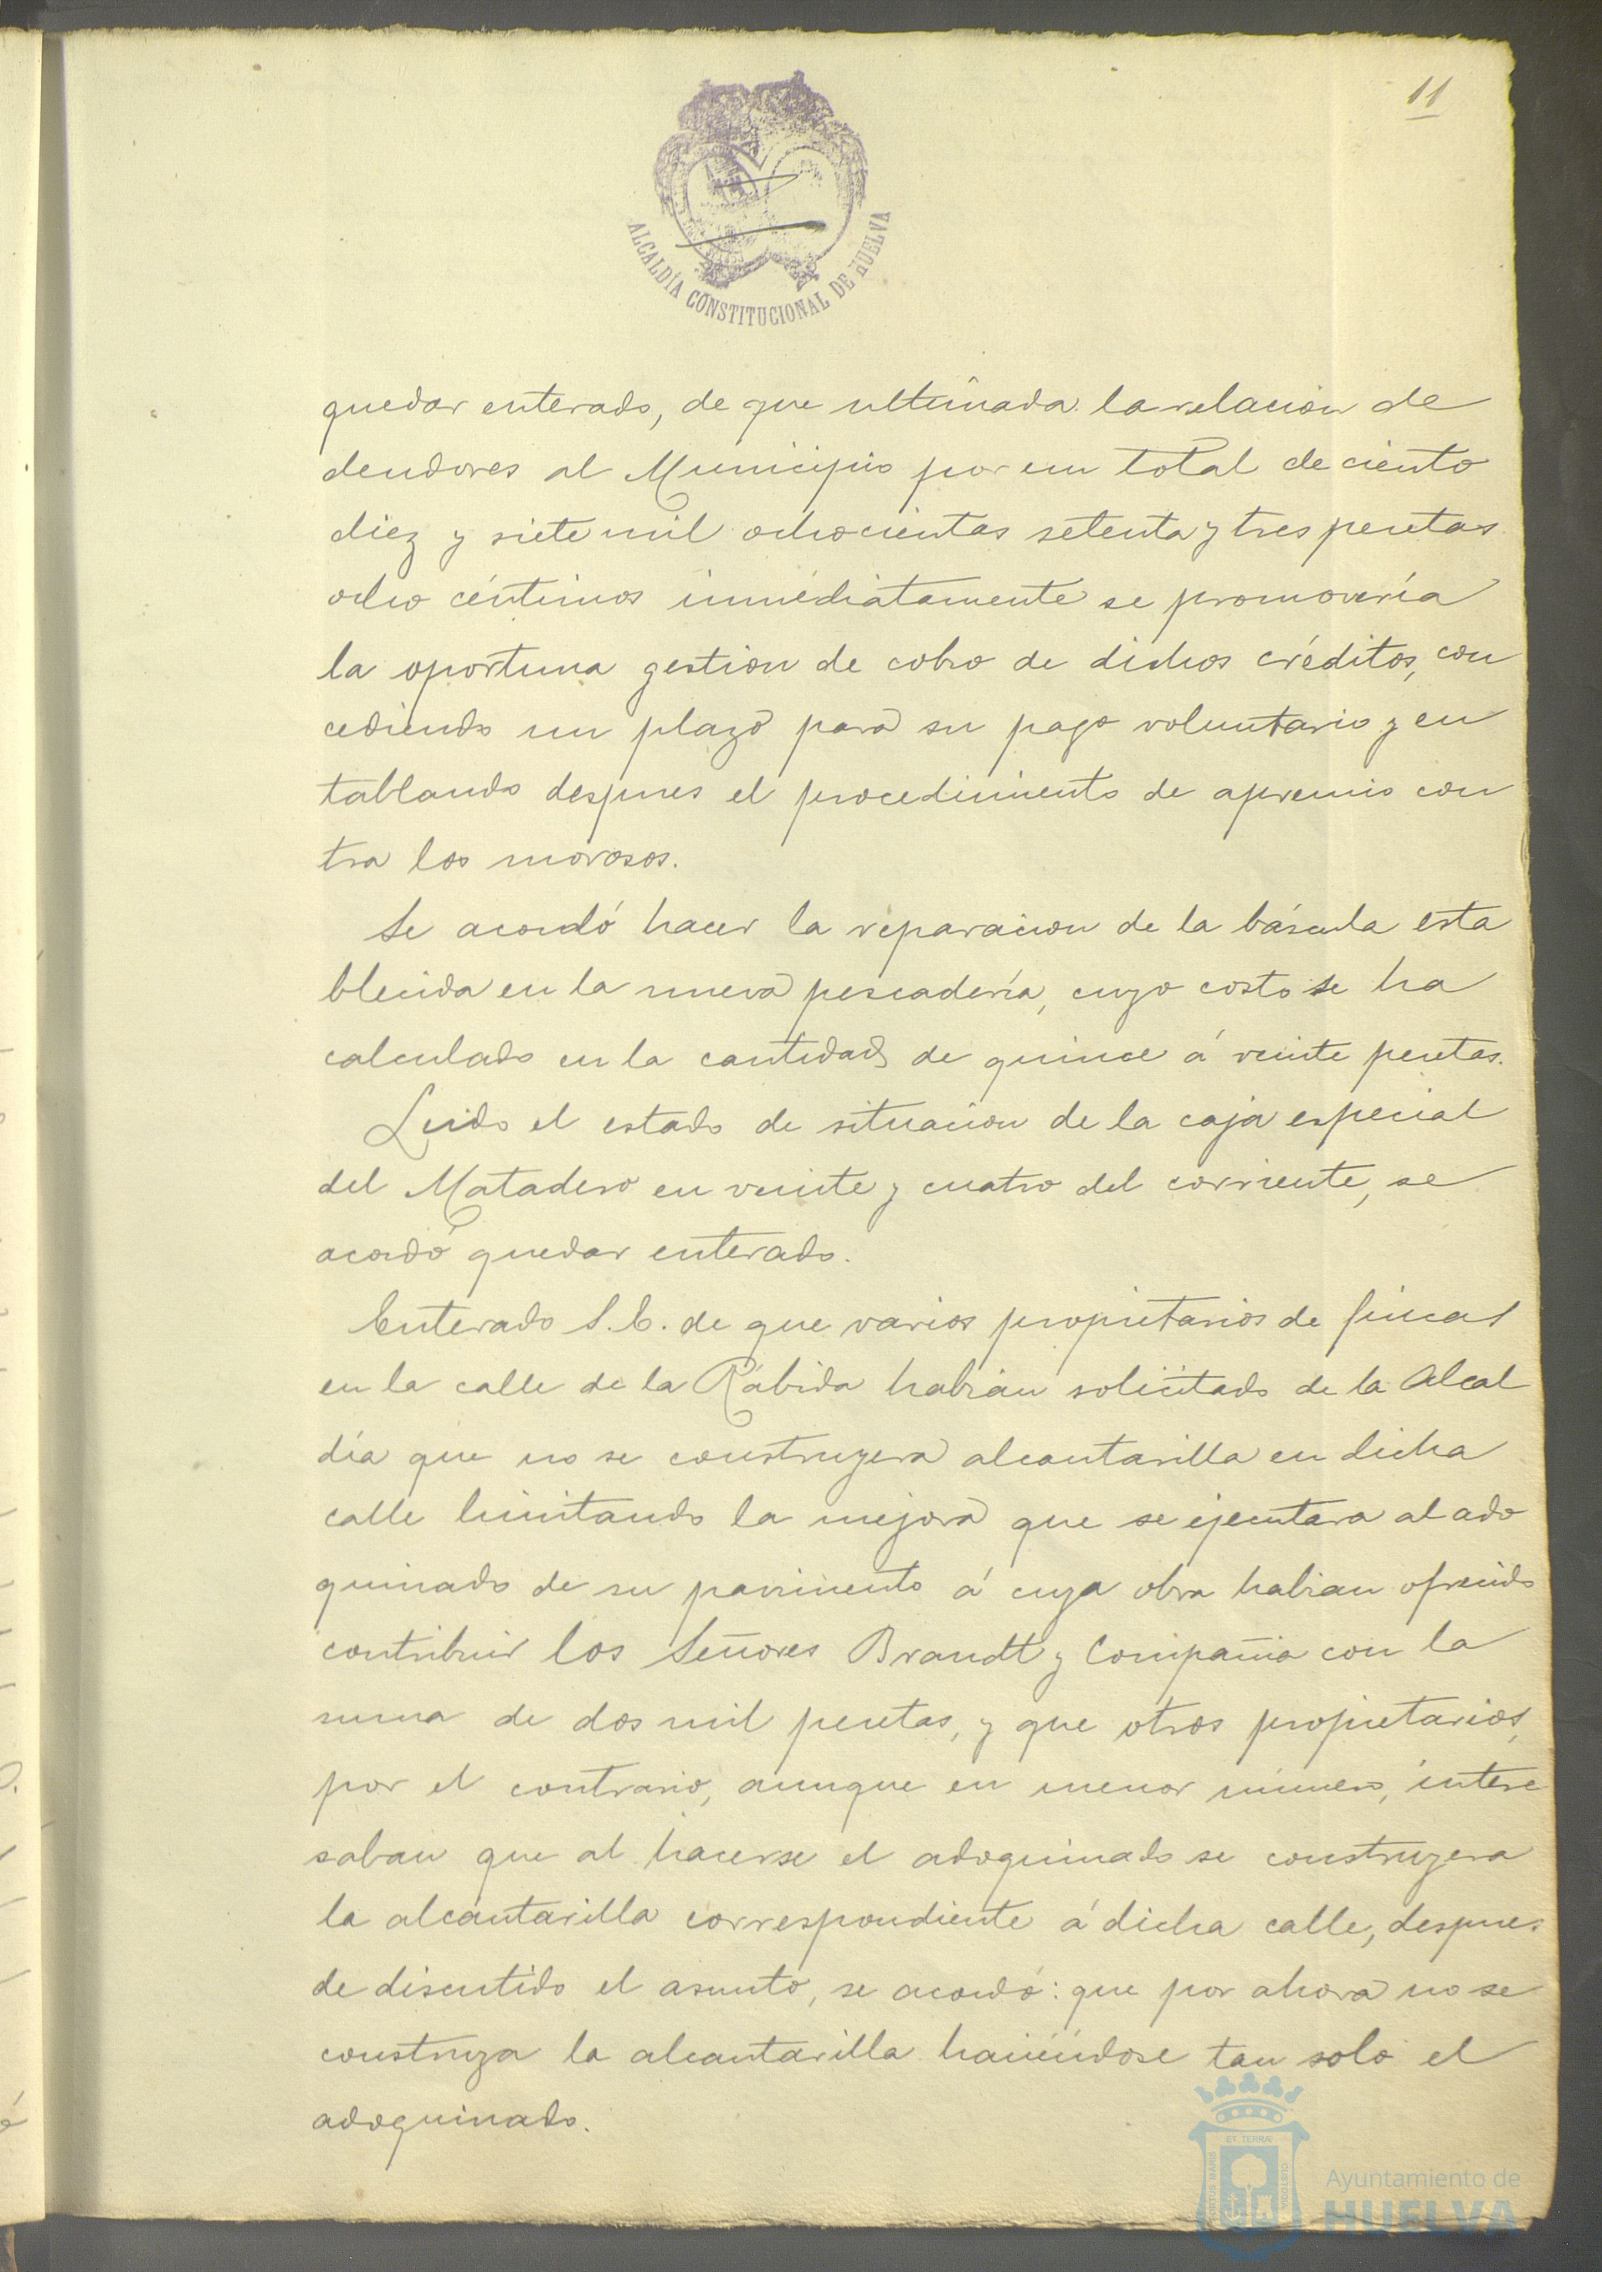 11
ALCALDÍA CONSTITUCIONAL DE HUELVA
quedar enterado, de que ultimada la relacion de
deudores al Municipio por un total de ciento
diez y siete mil ochocientas setenta y tres pesetas
ocho céntimos inmediatamente se promovería
la oportuna gestion de cobro de dichos créditos, con
cediendo un plazo para su pago voluntario y en
tablando despues el procedimiento de apremio con
tra los morosos.
Se acordó hacer la reparacion de la báscula esta
blecida en la nueva pescadería, cuyo costo se ha
calculado en la cantidad de quince á veinte pesetas.
Leido el estado de situacion de la caja especial
del Matadero en veinte y cuatro del corriente, se
acordó quedar enterado.
Enterado S.E. de que varios propietarios de fincas
en la calle de la Rábida habian solicitado de la Alcal
día que no se construyera alcantarilla en dicha
calle limitando la mejora que se ejecutara al ado
quinado de su pavimento á cuya obra habian ofrecido
contribuir los Señores Brandt y Compañia con la
suma de dos mil pesetas, y que otros propietarios,
por el contrario, aunque en menor número, intere
saban que al hacerse el adoquinado se construyera
la alcantarilla correspondiente á dicha calle, despues
de discutido el asunto, se acordó: que por ahora no se
construya la alcantarilla haciéndose tan solo el
adoquinado.
PORTUS MARIS
ET TERRÆ
CUSTODIA
Ayuntamiento de
HUELVA